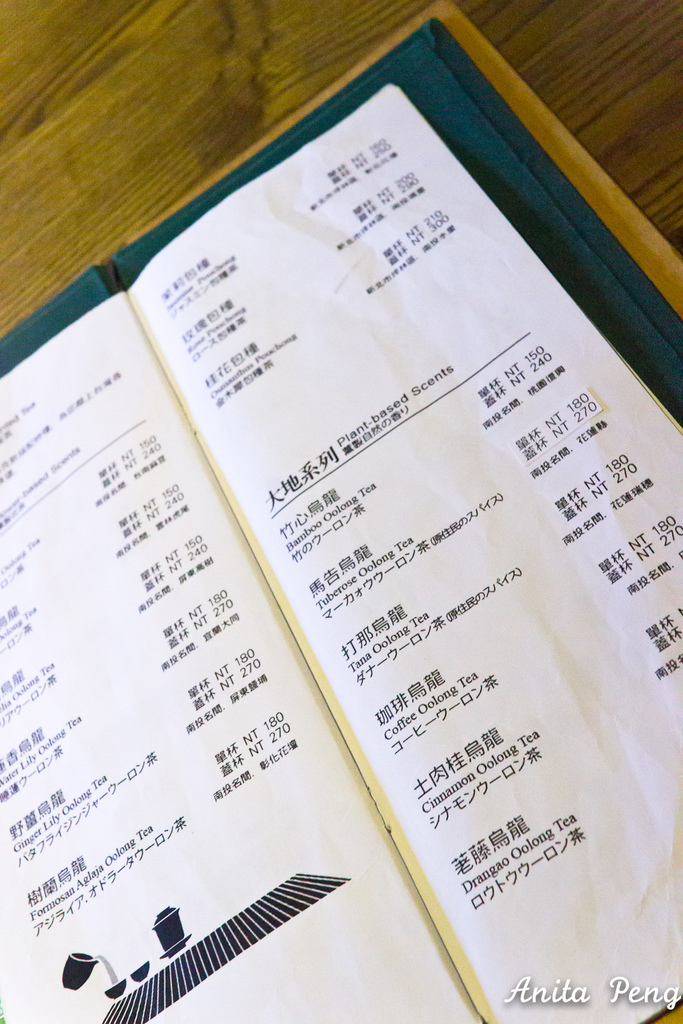 單杯 NT 150
蓋杯 NT 240
南投名間．台南
單杯 NT 150
蓋杯 NT 240
南投名間．雲林虎尾
單杯 NT 150
蓋杯 NT 240
南投名間．屏東萬樹
單杯 NT 180
蓋杯 NT 270
南投名間．宜蘭大同
單杯 NT 180
蓋杯 NT 270
南投名間．屏東
Water Lily Oolong Tea
單杯 NT 180
蓋杯 NT 270
南投名間．彰化花壇
野薑烏龍
Ginger Lily Oolong Tea
バタフライジンジャーウーロン茶
樹蘭烏龍
Formosan Aglaja Oolong Tea
アジライア．オドラータウーロン茶
茉莉包種
Jasmine Pouchong
ジャスミン包種茶
玫瑰包種
Rose Pouchong
ローズ包種茶
單杯 NT 200
桂花包種
Osmanthus Pouchong
金木犀包種茶
單杯 NT 210
蓋杯 NT 300
大地系列 Plant-based Scents
薫製自然の香り
竹心烏龍
Bamboo Oolong Tea
竹のウーロン茶
單杯 NT 150
蓋杯 NT 240
南投名間．桃園復興
馬告烏龍
Tuberose Oolong Tea
マーカォウウーロン茶(原住民のスパイス)
單杯 NT 180
蓋杯 NT 270
南投名間．花蓮縣
打那烏龍
Tana Oolong Tea
ダナーウーロン茶(原住民のスパイス)
單杯 NT 180
蓋杯 NT 270
南投名間．花蓮瑞穗
珈琲烏龍
Coffee Oolong Tea
コーヒーウーロン茶
單杯 NT 180
蓋杯 NT 270
南投名間．
土肉桂烏龍
Cinnamon Oolong Tea
シナモンウーロン茶
單杯 NT
蓋杯 NT
南投名
荖藤烏龍
Drangao Oolong Tea
ロウトウウーロン茶
Anita Peng